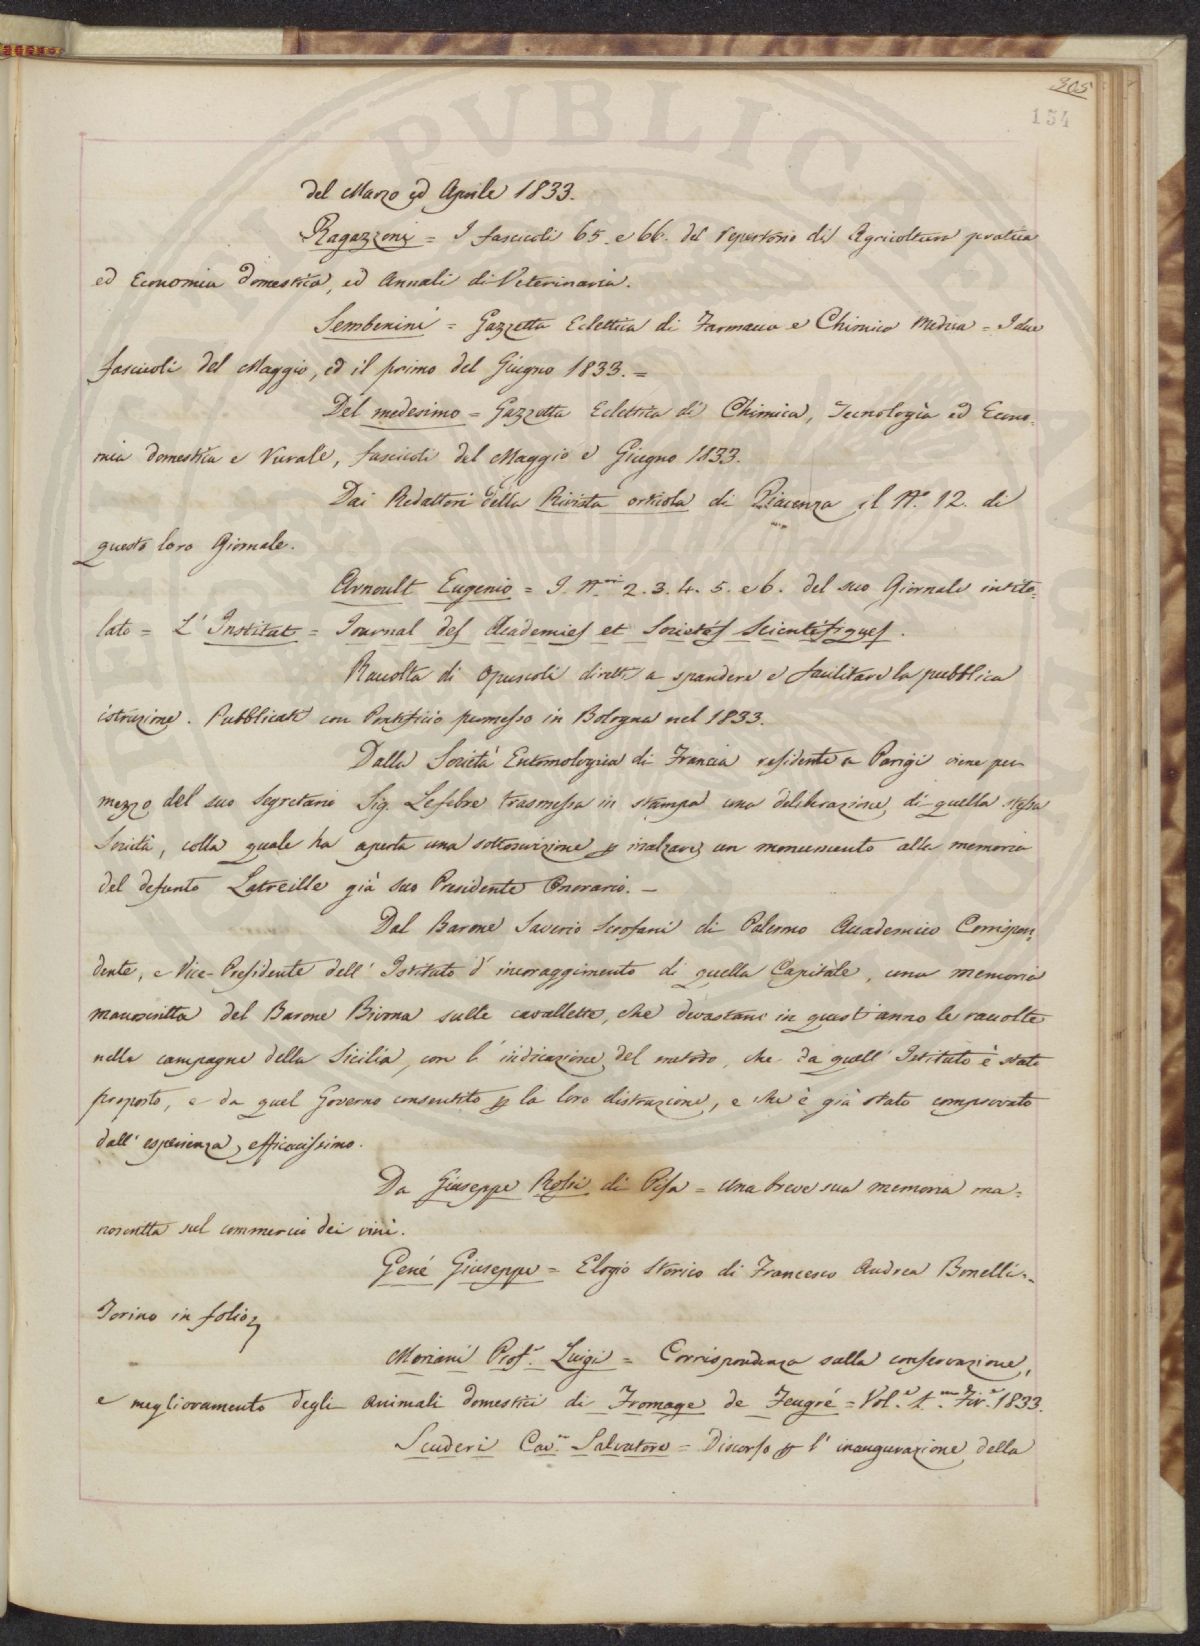 305
154
del Marzo ed Aprile 1833.
Ragazzoni = I fascicoli 65. e 66. del repertorio di Agricoltura pratica
ed Economia domestica, ed Annali di Veterinaria.
Sembenini = Gazzetta Eclettica di Farmacia e Chimica Medica = I due
fascicoli del Maggio, ed il primo del Giugno 1833. =
Del medesimo = Gazzetta Eclettica di Chimica, Tecnologia ed Econo-
mia domestica e rurale, fascicoli del Maggio e Giugno 1833.
Dai Redattori della Rivista orticola di Piacenza il N.° 12. di
questo loro Giornale.
Arnoult Eugenio = I N.ri 2. 3. 4. 5. e 6. del suo Giornale intito-
lato = L' Institut = Journal des Academies et Societés Scientifiques.
Raccolta di opuscoli diretti a spandere e facilitare la pubblica
istruzione. Pubblicati con Pontificio permesso in Bologna nel 1833.
Dalla Società Entomologica di Francia residente a Parigi viene per
mezzo del suo Segretario Sig. Lefebre trasmessa in stampa una deliberazione di quella stessa
Società, colla quale ha aperta una sottoscrizione p inalzare un monumento alla memoria
del defunto Latreille già suo Presidente Onorario. –
Dal Barone Saverio Scrofani di Palermo Accademico Corrispon-
dente, e Vice-Presidente dell' Istituto d' incoraggimento di quella Capitale, una memoria
manoscritta del Barone Bivona sulle cavallette, che devastano in quest' anno le raccolte
nelle campagne della Sicilia, con l' indicazione del metodo, che da quell' Istituto è stato
proposto, e da quel Governo consentito p la loro distruzione, e che è già stato comprovato
dall' esperienza efficacissimo.
Da Giuseppe Rossi di Pisa = Una breve sua memoria ma=
noscritta sul commercio dei vini.
Gené Giuseppe = Elogio Storico di Francesco Andrea Bonelli =
Torino in folio
Moriani Prof.r Luigi = Corrispondenza sulla conservazione,
e miglioramento degli animali domestici di Fromage de Feugré = Vol.e 1.mo Fir.e 1833.
Scuderi Cav.re Salvatore = Discorso p l' inaugurazione della